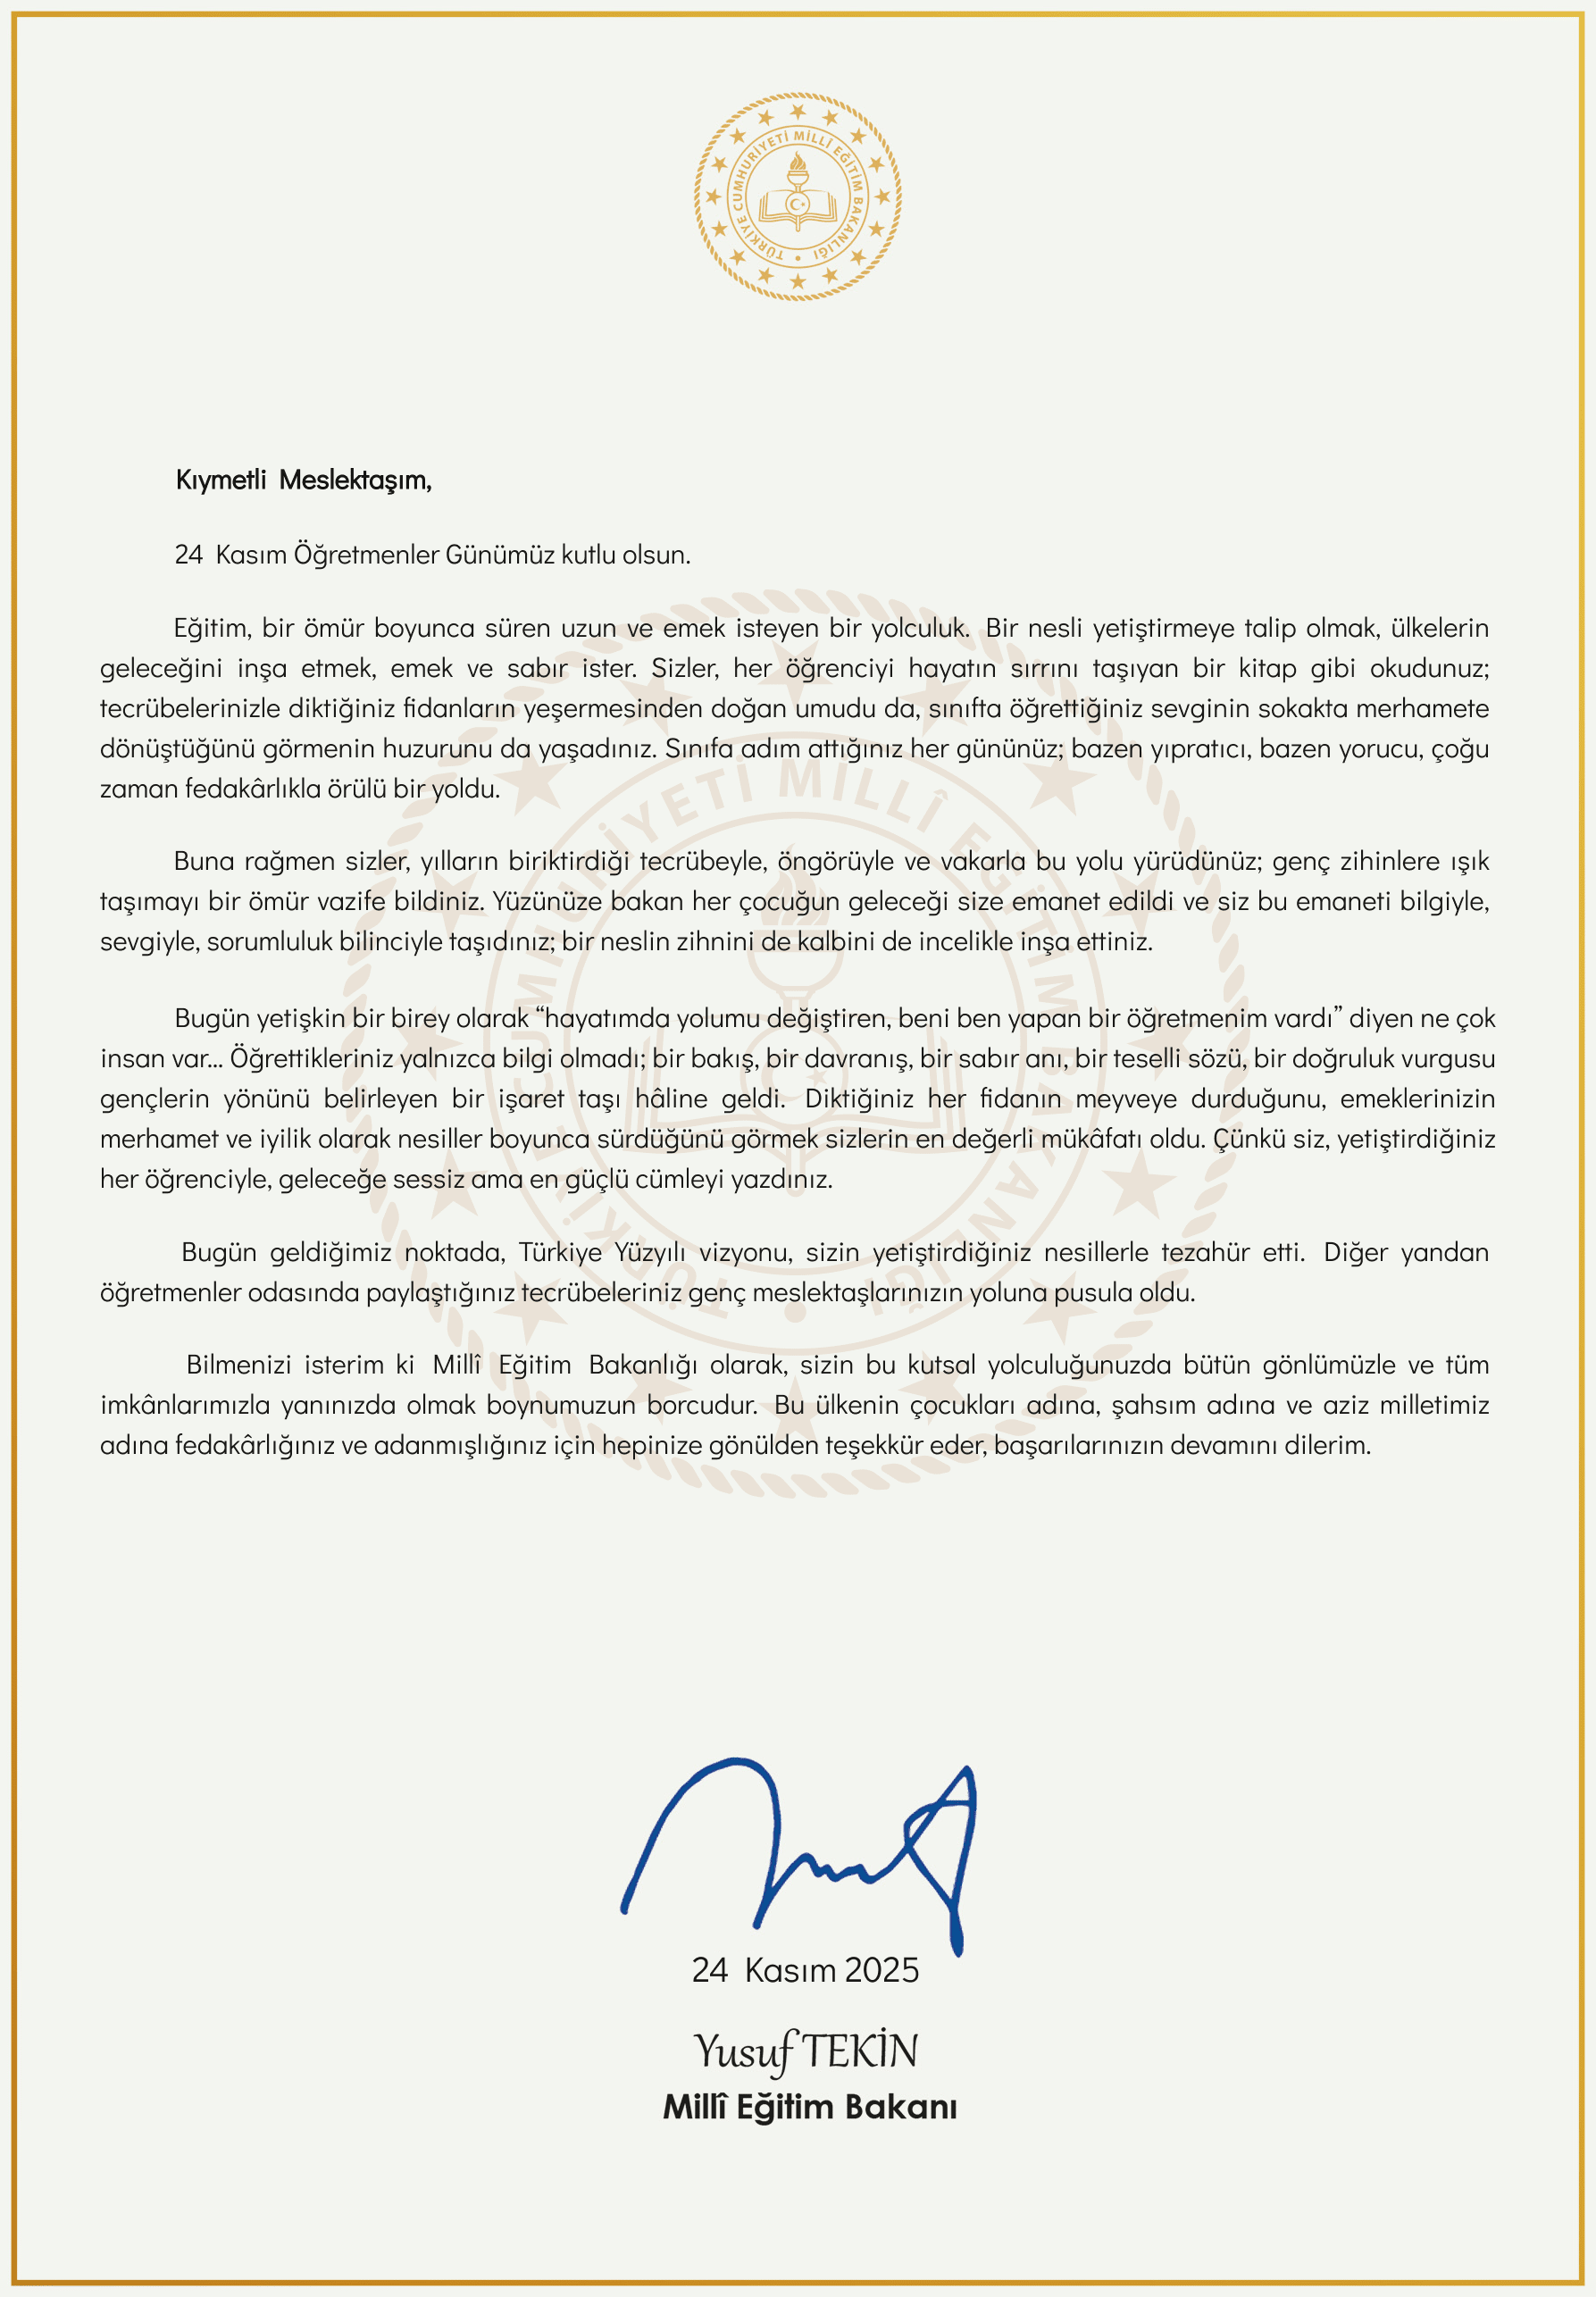 TÜRKİYE CUMHURİYETİ MİLLÎ EĞİTİM BAKANLIĞI
Kıymetli Meslektaşım,
24 Kasım Öğretmenler Günümüz kutlu olsun.
Eğitim, bir ömür boyunca süren uzun ve emek isteyen bir yolculuk. Bir nesli yetiştirmeye talip olmak, ülkelerin
geleceğini inşa etmek, emek ve sabır ister. Sizler, her öğrenciyi hayatın sırrını taşıyan bir kitap gibi okudunuz;
tecrübelerinizle diktiğiniz fidanların yeşermesinden doğan umudu da, sınıfta öğrettiğiniz sevginin sokakta merhamete
dönüştüğünü görmenin huzurunu da yaşadınız. Sınıfa adım attığınız her gününüz; bazen yıpratıcı, bazen yorucu, çoğu
zaman fedakârlıkla örülü bir yoldu.
Buna rağmen sizler, yılların biriktirdiği tecrübeyle, öngörüyle ve vakarla bu yolu yürüdünüz; genç zihinlere ışık
taşımayı bir ömür vazife bildiniz. Yüzünüze bakan her çocuğun geleceği size emanet edildi ve siz bu emaneti bilgiyle,
sevgiyle, sorumluluk bilinciyle taşıdınız; bir neslin zihnini de kalbini de incelikle inşa ettiniz.
Bugün yetişkin bir birey olarak “hayatımda yolumu değiştiren, beni ben yapan bir öğretmenim vardı” diyen ne çok
insan var... Öğrettikleriniz yalnızca bilgi olmadı; bir bakış, bir davranış, bir sabır anı, bir teselli sözü, bir doğruluk vurgusu
gençlerin yönünü belirleyen bir işaret taşı hâline geldi. Diktiğiniz her fidanın meyveye durduğunu, emeklerinizin
merhamet ve iyilik olarak nesiller boyunca sürdüğünü görmek sizlerin en değerli mükâfatı oldu. Çünkü siz, yetiştirdiğiniz
her öğrenciyle, geleceğe sessiz ama en güçlü cümleyi yazdınız.
Bugün geldiğimiz noktada, Türkiye Yüzyılı vizyonu, sizin yetiştirdiğiniz nesillerle tezahür etti. Diğer yandan
öğretmenler odasında paylaştığınız tecrübeleriniz genç meslektaşlarınızın yoluna pusula oldu.
Bilmenizi isterim ki Millî Eğitim Bakanlığı olarak, sizin bu kutsal yolculuğunuzda bütün gönlümüzle ve tüm
imkânlarımızla yanınızda olmak boynumuzun borcudur. Bu ülkenin çocukları adına, şahsım adına ve aziz milletimiz
adına fedakârlığınız ve adanmışlığınız için hepinize gönülden teşekkür eder, başarılarınızın devamını dilerim.
TÜRKİYE CUMHURİYETİ MİLLÎ EĞİTİM BAKANLIĞI
24 Kasım 2025
Yusuf TEKİN
Millî Eğitim Bakanı